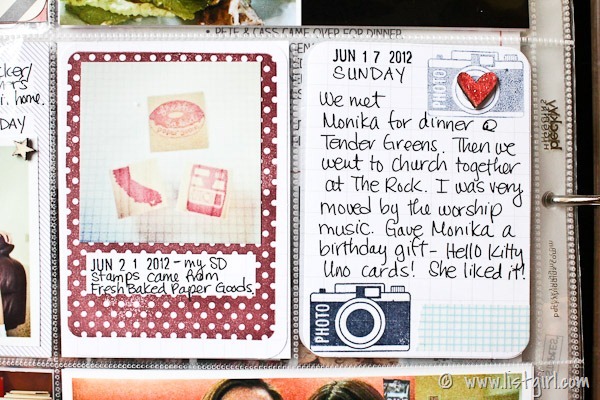 PETE & CASS CAME OVER FOR DINNER
home.
DAY
JUN 21 2012 - my SD
stamps came from
Fresh Baked Paper Goods.
JUN 17 2012
SUNDAY
PHOTO
We met
Monika for dinner @
Tender Greens. Then we
went to church together
at The Rock. I was very
moved by the worship
music. Gave Monika a
birthday gift - Hello Kitty
Uno cards! She liked it!
PHOTO
© www.listgirl.com